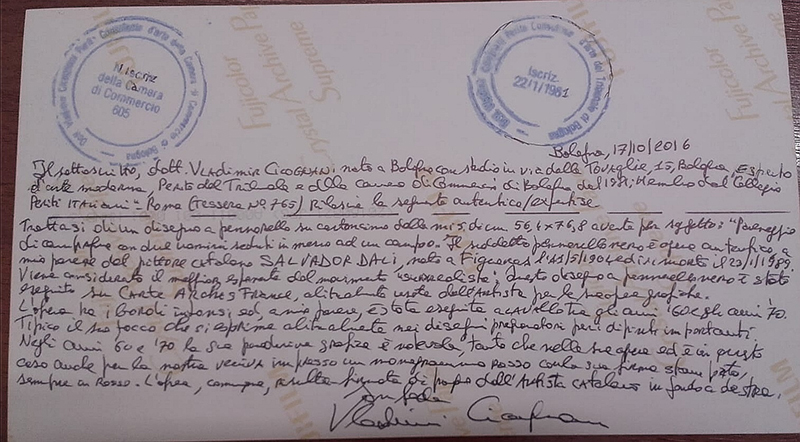 Fujicolor
Crystal Archive Paper
Supreme
FUJIFILM
N. Iscriz.
della Camera
di Commercio
605
Iscriz.
22/1/1981
Bologna, 17/10/2016
Il sottoscritto, dott. Vladimir Cicognani nato a Bologna con studio in via delle Tovaglie, 15, Bologna, Esperto
d'arte moderna, Perito del Tribunale e della camera di Commercio di Bologna dal 1981, Membro del Collegio
Periti Italiani - Roma (Tessera No 765) Rilascia la seguente autentica/expertise
Trattasi di un disegno a pennarello su cartoncino dalle mis. di cm 56,4x76,8 avente per soggetto: "Paesaggio
di campagna con due uomini seduti in mezzo ad un campo". Il suddetto pennarello nero è opera autentica a
mio parere del pittore catalano SALVADOR DALÍ, nato a Figueras l'11/5/1904 ed ivi morto il 23/1/1989.
Viene considerato il maggior esponente del movimento "surrealista". Questo disegno a pennarello nero è stato
eseguito su Carte Arches France, abitualmente usate dall'Artista per le sue opere grafiche.
L'opera ha i bordi intonsi ed, a mio parere, è stata eseguita a cavallo tra gli anni '60 e gli anni '70.
Tipico il suo tocco che si esprime abitualmente nei disegni preparatori per i dipinti importanti.
Negli anni '60 e '70 la sua produzione grafica è notevole, tanto che nelle sue opere ed è in questo
caso anche per la nostra veniva impresso un monogramma rosso con la sua firma stampata,
sempre in rosso. L'opera, comunque, risulta firmata di pugno dall'Artista catalano in fondo a destra.
In fede
Vladimir Cicognani